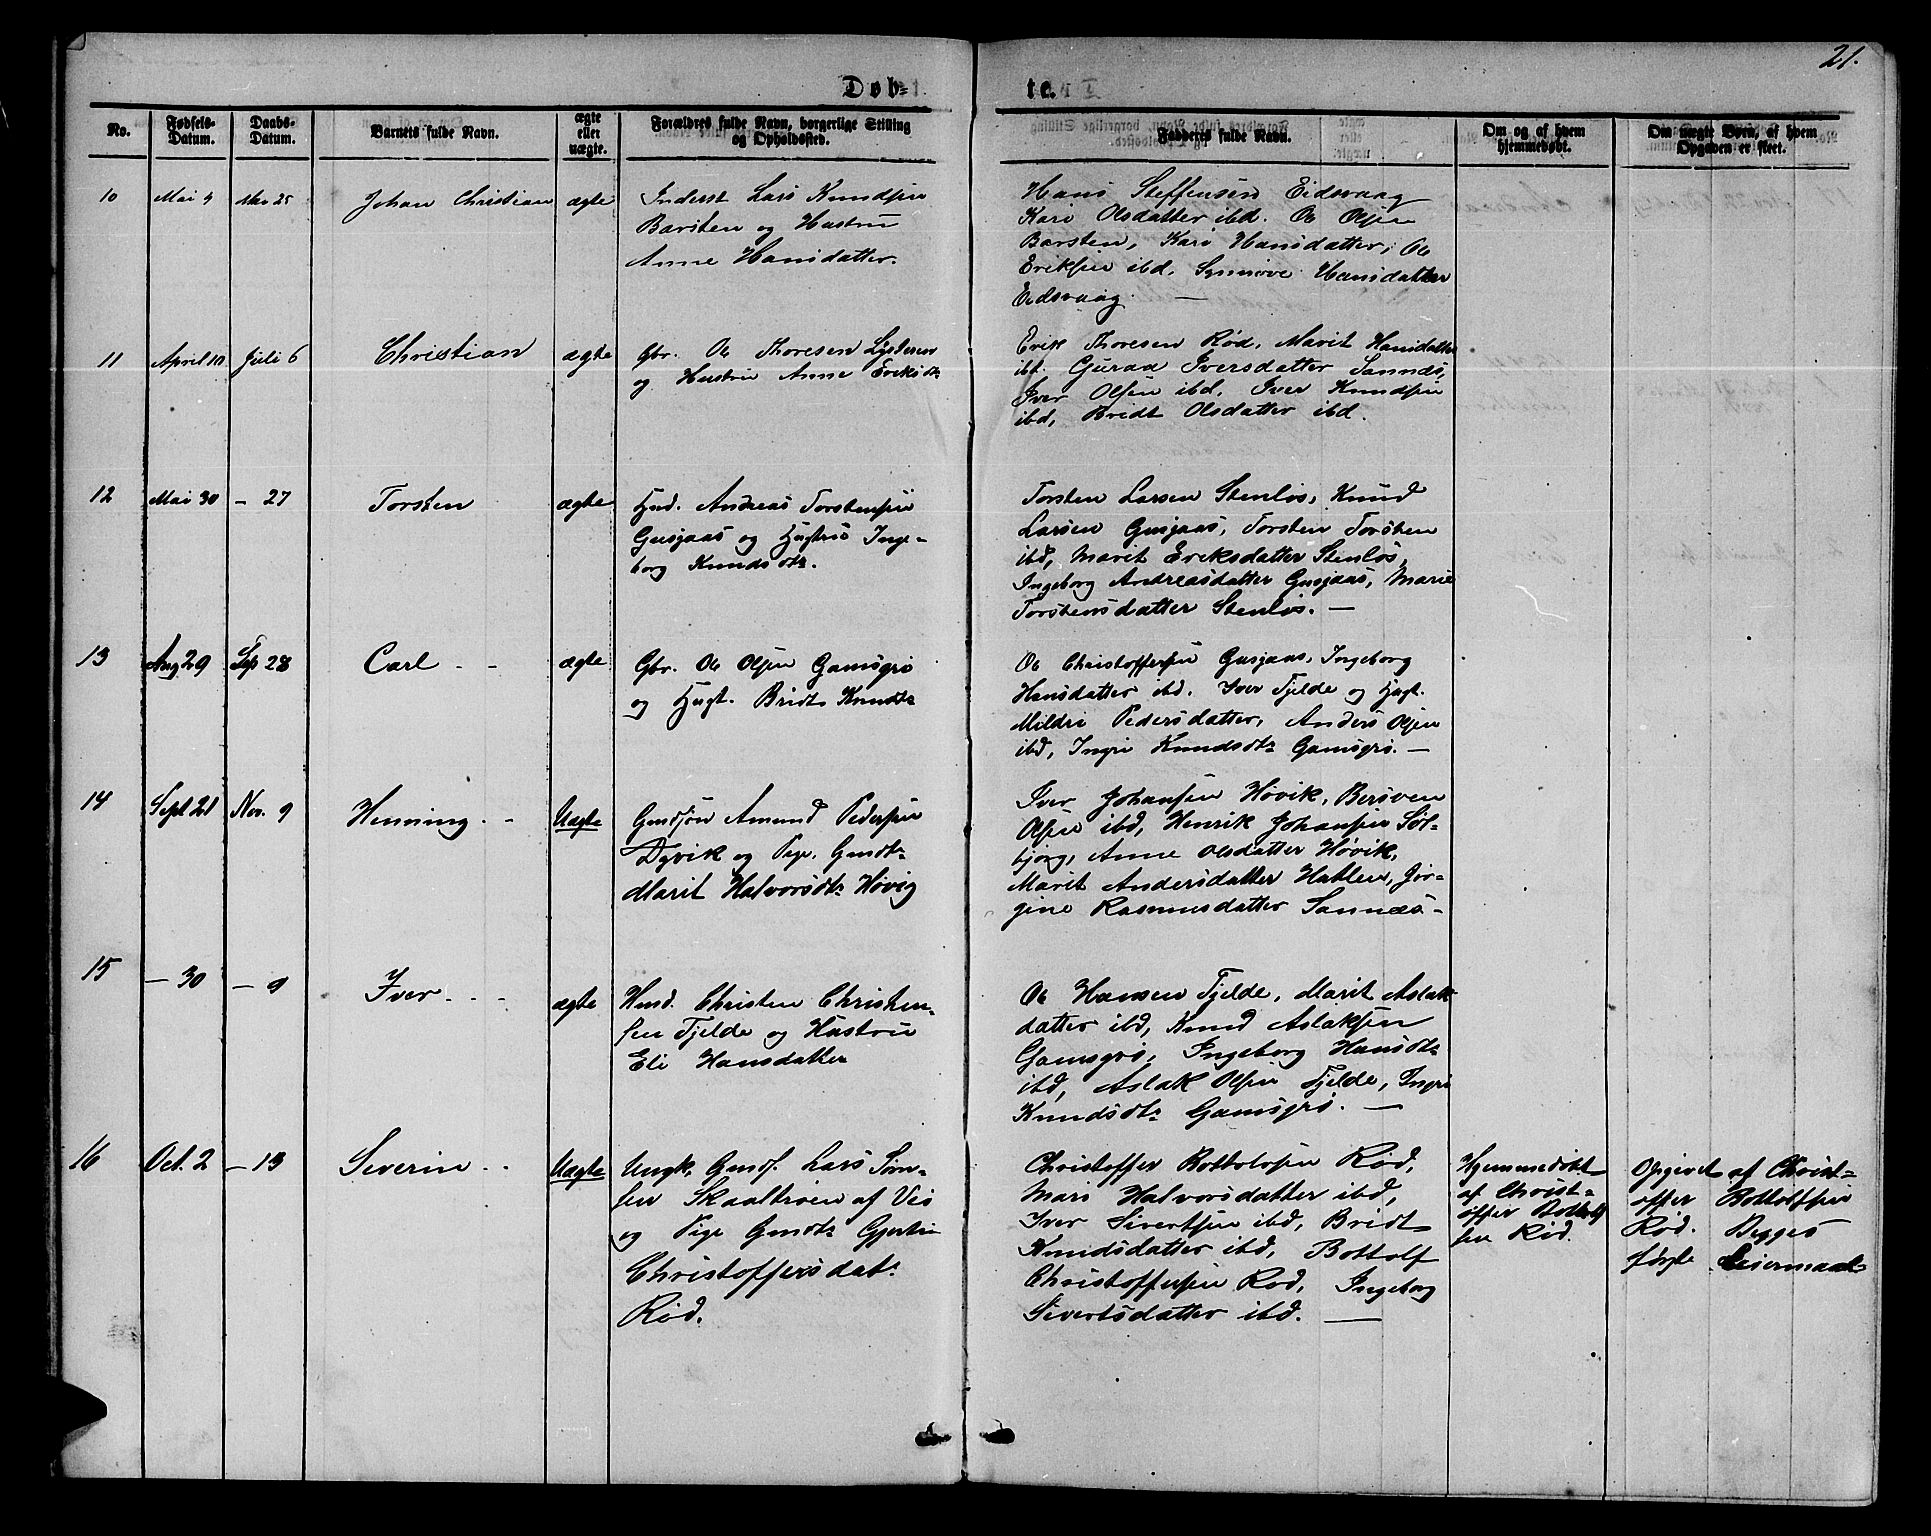 21.
Døb-
te.
No.
Fødsels-
Datum.
Daabs-
Datum.
Barnets fulde Navn.
ægte
eller
uægte.
Forældres fulde Navn, borgerlige Stilling
og Opholdssted.
Fadderes fulde Navn.
Om og af hvem
hjemmedøbt.
Om uægte Børn, af hvem
Opgaven er skeet.
10
Mai 4
Mai 25
Johan Christian
ægte
Inderst Lars Knudsen
Barsten og Hustru
Anne Hansdatter.
Hans Steffensen Eidsvaag
Kari Olsdatter ibd. Ole Olsen
Barsten, Kari Hansdatter, Ole
Eriksen ibd. Synnøve Hansdatter
Eidsvaag. —
11
April 10
Juli 6
Christian
ægte
Gbr. Ole Thoresen
og Hustru Anne Eriksdt.
Erik Thoresen Rød, Marit Hansdatter
ibd. Guraa Iversdatter Sannæs,
Iver Olsen ibd, Iver Knudsen
ibd, Bridt Olsdatter ibd.
12
Mai 30
- 27
Torsten
ægte
Hmd. Andreas Torstensen
Gusjaas og Hustru Inge-
borg Knudsdt.
Torsten Larsen Stenløs, Knud
Larsen Gusjaas, Torsten Torsten
ibd, Marit Eriksdatter Stenløs,
Ingeborg Andreasdatter Gusjaas, Marie
Torstensdatter Stenløs. —
13
Aug 29
Sep 28
Carl - -
ægte
Gbr. Ole Olsen Gamsgrø
og Hust. Bridt Knudt.
Ole Christoffersen Gusjaas, Ingeborg
Hansdatter ibd. Iver Fjelde og Hust.
Mildri Pedersdatter, Anders Olsen
ibd, Ingri Knudsdt. Gamsgrø. —
14
Sept 21
Nov. 9
Henning. -
Uægte
Gmdsøn Amund Pedersen
Dyvik og Pige, Gmdt.
Marit Halvorsdt. Høvig
Iver Johansen Høvik, Bersven
Olsen ibd, Henrik Johansen Søl-
bjørg, Anne Olsdatter Høvik,
Marit Andersdatter Hatlen, Jør-
gine Rasmusdatter Sannæs-
15
- 30
- 9
Iver - - -
ægte
Hmd. Christen Christen-
sen Fjelde og Hustru
Eli Hansdatter
Ole Hansen Fjelde, Marit Aslak
datter ibd, Knud Aslaksen
Gamsgrø, Ingeborg Hansdt.
ibd, Aslak Olsen Fjelde, Ingri
Knudsdt. Gamsgrø. —
16
Oct. 2
- 13
Severin - -
Uægte
Ungk. Gmds. Lars Søn-
sen Skaaltrøen af Veø
og Pige Gmdt. Gjertrin
Christoffersdat.
Rød.
Christoffer Bottolvsen Rød,
Mari Halvorsdatter ibd,
Iver Sivertsen ibd, Bridt
Knudsdatter ibd, Bottolf
Christoffersen Rød, Ingeborg
Sivertsdatter ibd. —
Hjemmedøbt
af Christ-
offer Bottolf
sen Rød.
Opgivet af Christ-
offer Bottolfsen
Rød. Begges
første Leiermaal